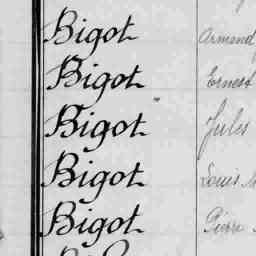 Bigot Armand
Bigot Ernest
Bigot " Jules
Bigot Louis M
Bigot Pierre